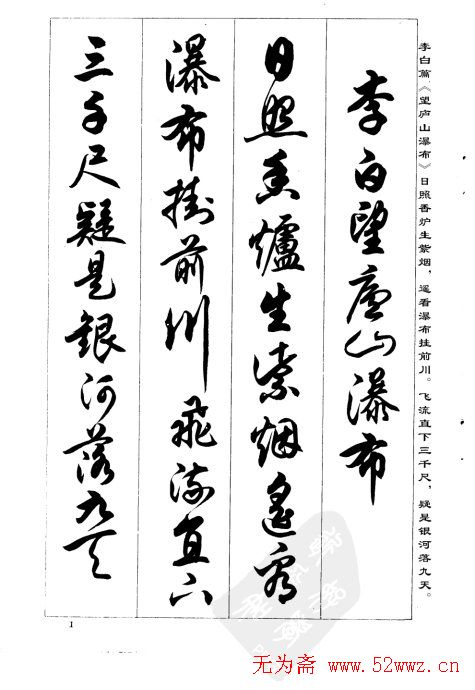 李白篇《望庐山瀑布》日照香炉生紫烟，遥看瀑布挂前川。飞流直下三千尺，疑是银河落九天。
李白望廬山瀑布
日照香爐生紫烟遙看
瀑布掛前川飛流直下
三千尺疑是銀河落九天
1
无为斋 www.52wwz.cn